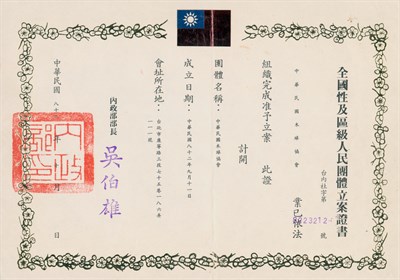 全國性及區級人民團體立案證書
台內社字第8223212號
中華民國木球協會
業已依法
組織完成准予立案 此證
計開
團體名稱：中華民國木球協會
成立日期：中華民國八十二年九月十一日
會址所在地：
內政部部長 吳伯雄
中華民國 八十 月 日
內政部印